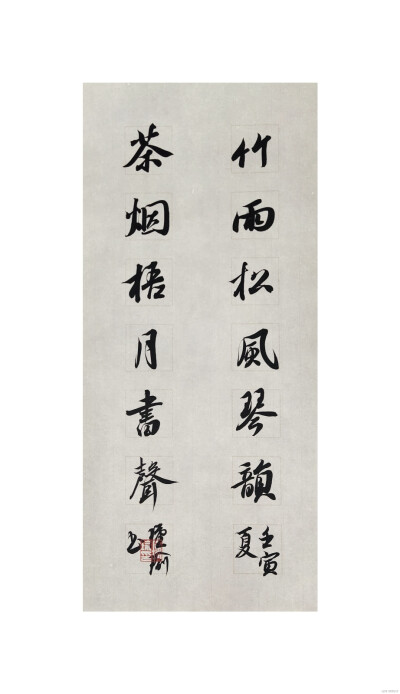 竹雨松風琴韻
壬寅
夏
茶烟梧月書聲